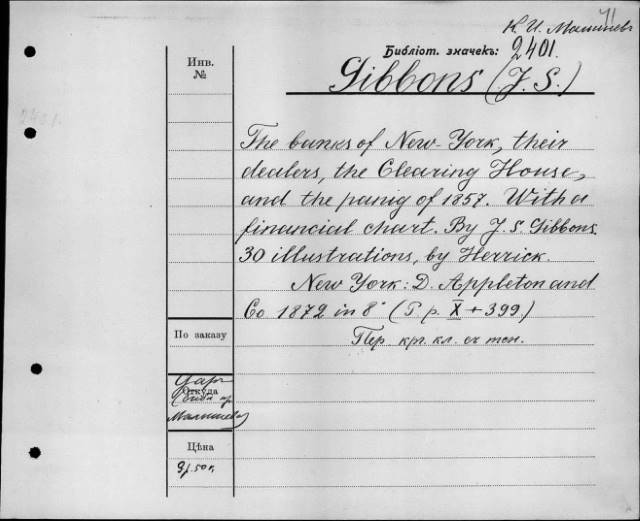 71
К. И. Малышевъ
Библіот. значекъ: 2401.
Gibbons (J. S.)
Инв.
№
2401.
The banks of New-York, their
dealers, the Clearing House,
and the panig of 1857. With a
financial chart. By J. S. Gibbons.
30 illustrations, by Herrick.
New York: D. Appleton and
Co 1872 in 8° ( p. X + 399.)
Пер. кр. кл. съ тен.
По заказу
Откуда
Даръ
Малышева)
Цѣна
3р. 50 к.